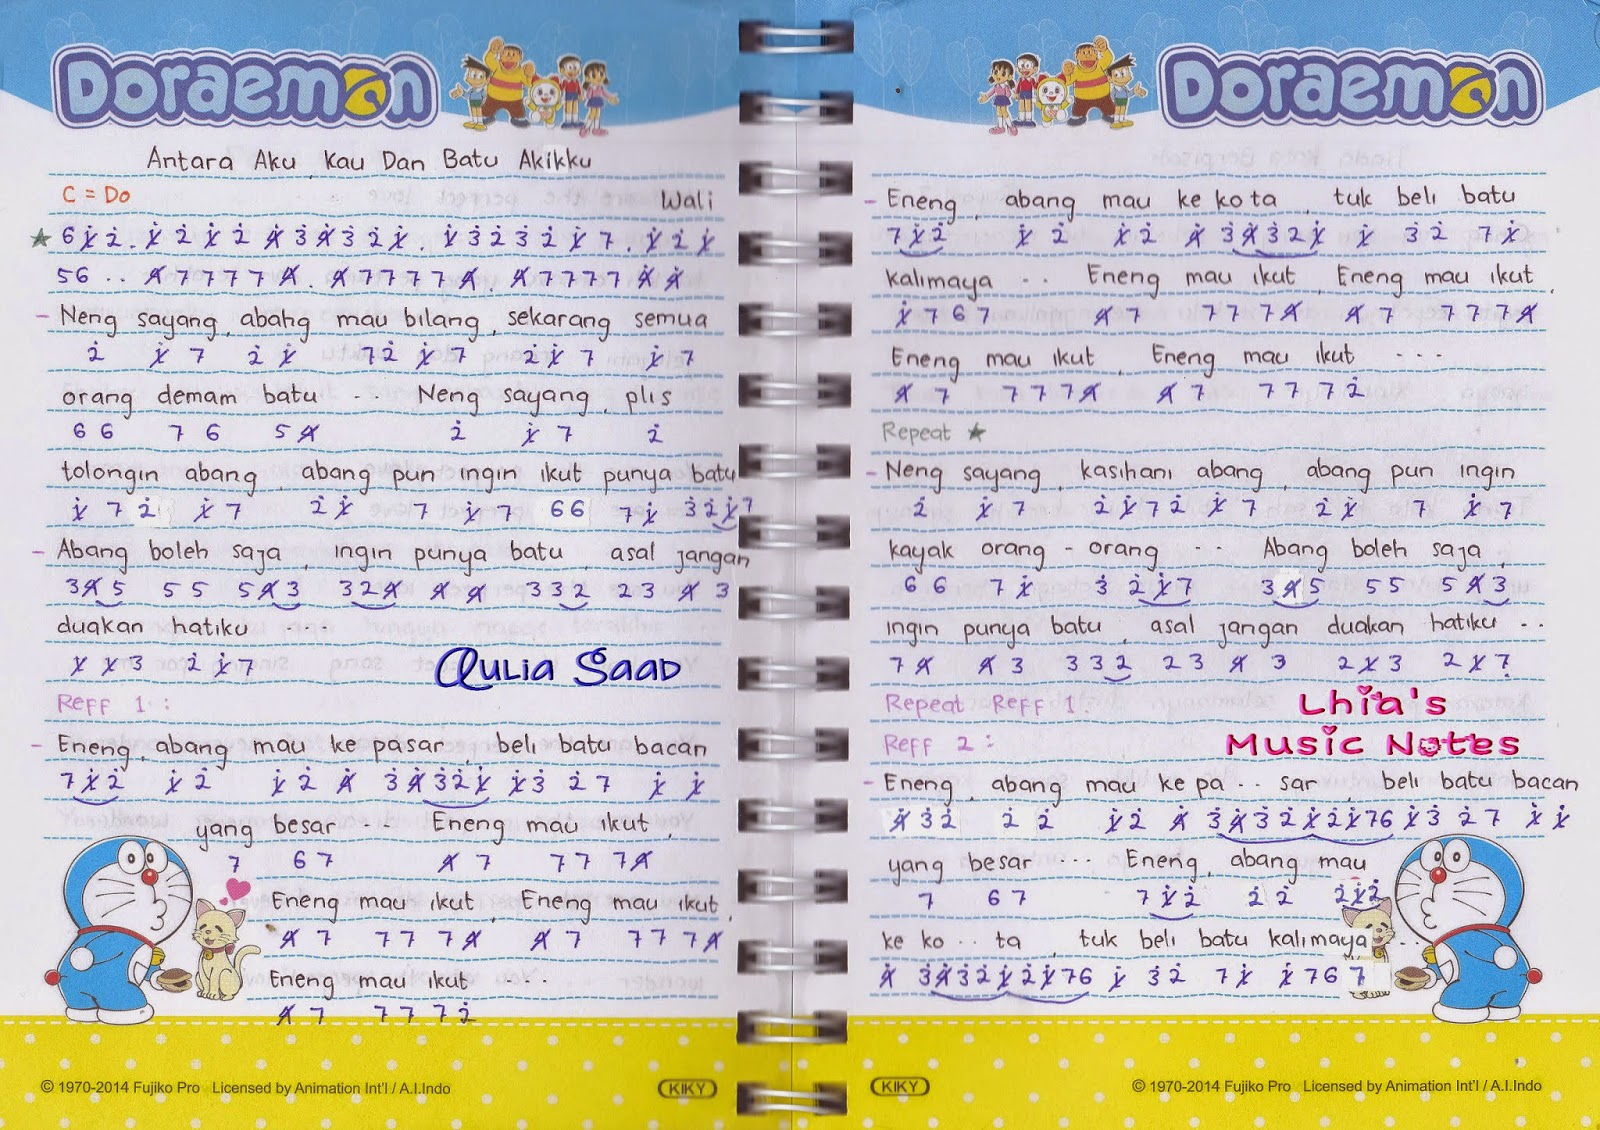 Doraemon
Antara Aku, Kau Dan Batu Akikku
C = Do
Wali
★ 6 1̸̇ 2̇ . 1̸̇ 2̇ 1̸̇ 2̇ 4̸̇ 3̇ 4̸̇ 3̇ 2̇ 1̸̇ . 1̸̇ 3̇ 2̇ 3̇ 2̇ 1̸̇ 7 . 1̸̇ 2̇ 1̸̇
5 6 . . 4̸ 7 7 7 7 4̸ . 4̸ 7 7 7 7 4̸ . 4̸ 7 7 7 7 4̸ 4̸
- Neng sayang, abang mau bilang, sekarang semua
2̇ 1̸̇ 7 2̇ 1̸̇ 7 2̇ 1̸̇ 7 2̇ 1̸̇ 7 1̸̇ 7
orang demam batu ... Neng sayang, plis
6 6 7 6 5 4̸ 2̇ 1̸̇ 7 2̇
tolongin abang, abang pun ingin ikut punya batu
1̸̇ 7 2̇ 1̸̇ 7 2̇ 1̸̇ 7 1̸̇ 7 6 6 7 1̸̇ 3̇ 2̇ 1̸̇ 7
- Abang boleh saja, ingin punya batu, asal jangan
3 4̸ 5 5 5 5 4̸ 3 3 2 4̸ 4̸ 4̸ 3 3 2 2 3 4̸ 3
duakan hatiku ...
1̸ 1̸ 3 2̇ 1̸̇ 7
Aulia Saad
Reff 1 :
- Eneng, abang mau ke pasar, beli batu bacan
7 1̸̇ 2̇ 1̸̇ 2̇ 1̸̇ 2̇ 4̸̇ 3̇ 4̸̇ 3̇ 2̇ 1̸̇ 1̸̇ 3̇ 2̇ 7 1̸̇ 1̸̇
yang besar ... Eneng mau ikut,
7 6 7 4̸ 7 7 7 7 4̸
Eneng mau ikut, Eneng mau ikut,
4̸ 7 7 7 7 4̸ 4̸ 7 7 7 7 4̸
Eneng mau ikut ...
4̸ 7 7 7 7 2̇
© 1970-2014 Fujiko Pro Licensed by Animation Int'l / A.I.Indo
KIKY
Doraemon
- Eneng, abang mau ke kota, tuk beli batu
7 1̸̇ 2̇ 1̸̇ 2̇ 1̸̇ 2̇ 4̸̇ 3̇ 4̸̇ 3̇ 2̇ 1̸̇ 1̸̇ 3̇ 2̇ 7 1̸̇
kalimaya .. Eneng mau ikut, Eneng mau ikut,
1̸̇ 7 6 7 4̸ 7 7 7 7 4̸ 4̸ 7 7 7 7 4̸
Eneng mau ikut, Eneng mau ikut ...
4̸ 7 7 7 7 4̸ 4̸ 7 7 7 7 2̇
Repeat ★
- Neng sayang, kasihani abang, abang pun ingin
2̇ 1̸̇ 7 2̇ 1̸̇ 7 2̇ 1̸̇ 7 2̇ 1̸̇ 7 1̸̇ 7
kayak orang - orang ... Abang boleh saja,
6 6 7 1̸̇ 3̇ 2̇ 1̸̇ 7 3 4̸ 5 5 5 5 4̸ 3
ingin punya batu, asal jangan duakan hatiku ..
7 4̸ 4̸ 3 3 3 2 2 3 4̸ 3 2 1̸ 3 2 1̸ 7
Repeat Reff 1.
Lhia's
Music Notes
Reff 2 :
- Eneng, abang mau ke pa .. sar, beli batu bacan
4̸̇ 3̇ 2̇ 2̇ 2̇ 1̸̇ 2̇ 4̸̇ 3̇ 4̸̇ 3̇ 2̇ 1̸̇ 2̇ 1̸̇ 7 6 1̸̇ 3̇ 2̇ 7 1̸̇ 1̸̇
yang besar ... Eneng, abang mau
7 6 7 7 1̸̇ 2̇ 2̇ 2̇ 2̇ 1̸̇ 2̇
ke ko .. ta, tuk beli batu kalimaya ..
4̸̇ 3̇ 4̸̇ 3̇ 2̇ 1̸̇ 2̇ 1̸̇ 7 6 1̸̇ 3̇ 2̇ 7 1̸̇ 1̸̇ 7 6 7
KIKY
© 1970-2014 Fujiko Pro Licensed by Animation Int'l / A.I.Indo